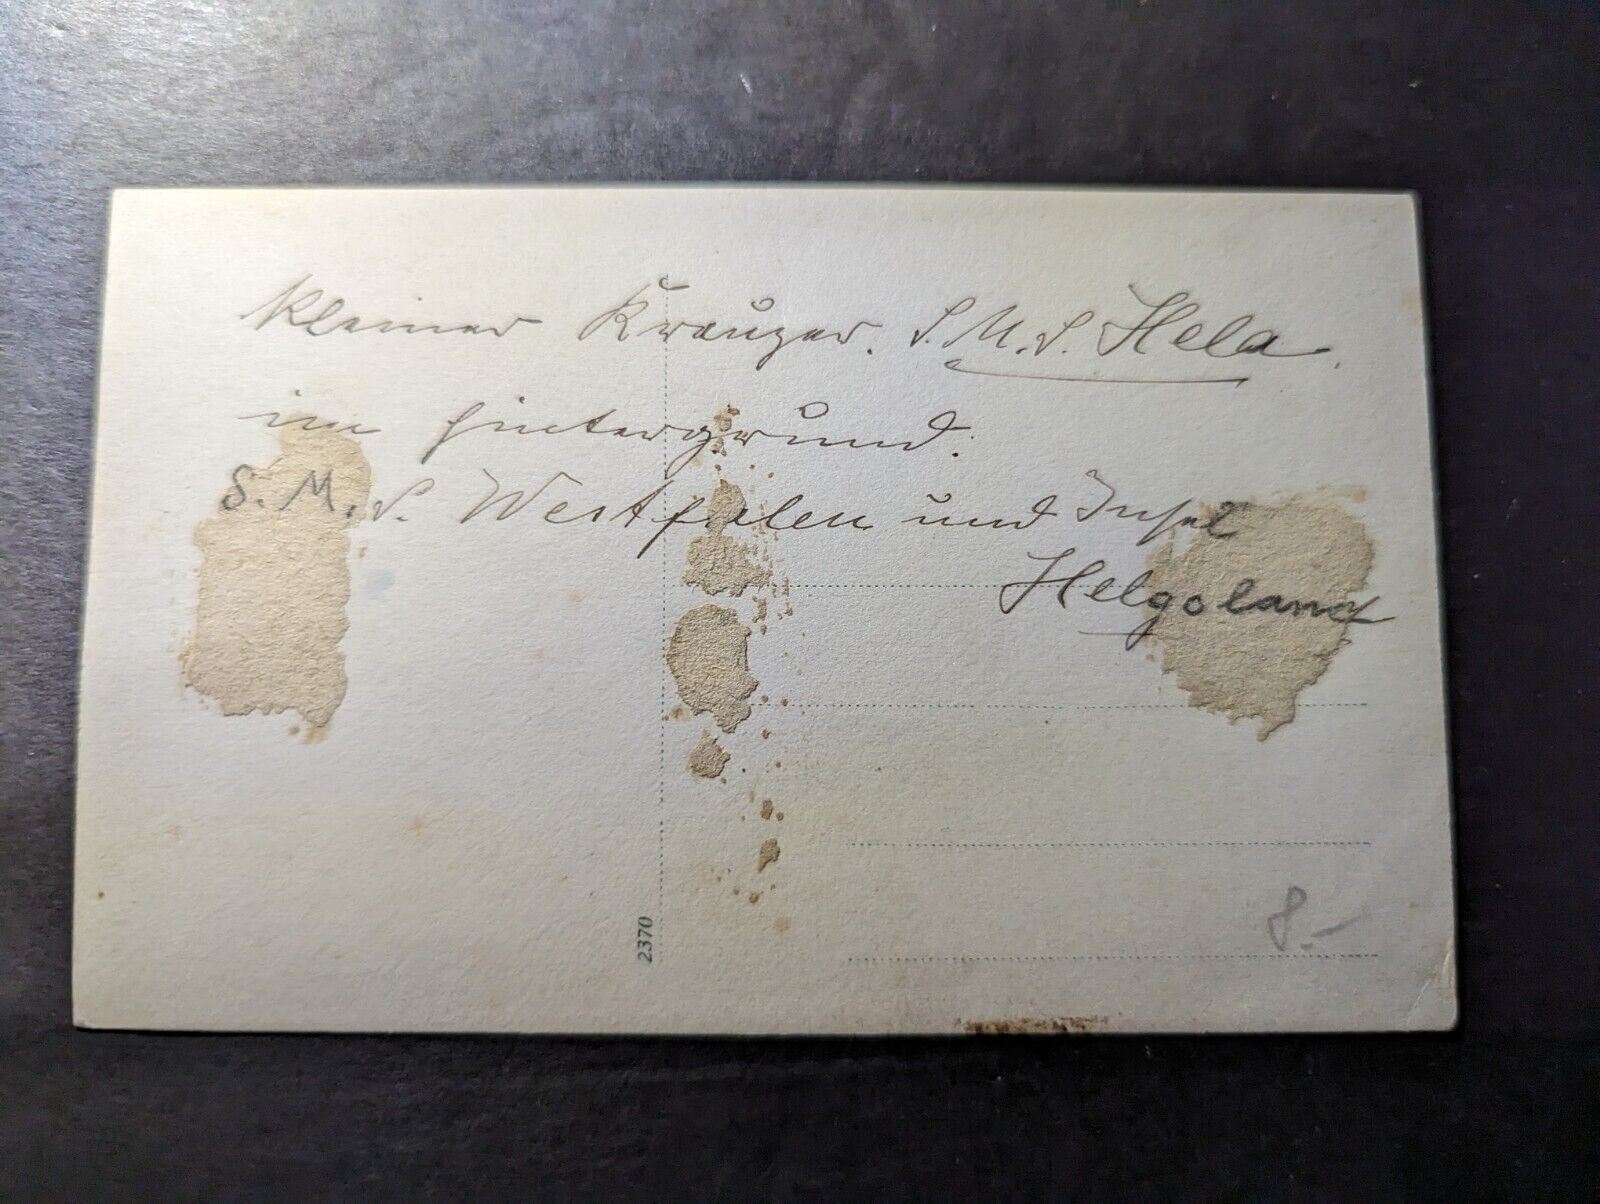 kleiner Kreuzer. S.M.S. Hela.
im Hintergrund.
S.M.S. Westfalen und Insel
Helgoland
2370
8.-